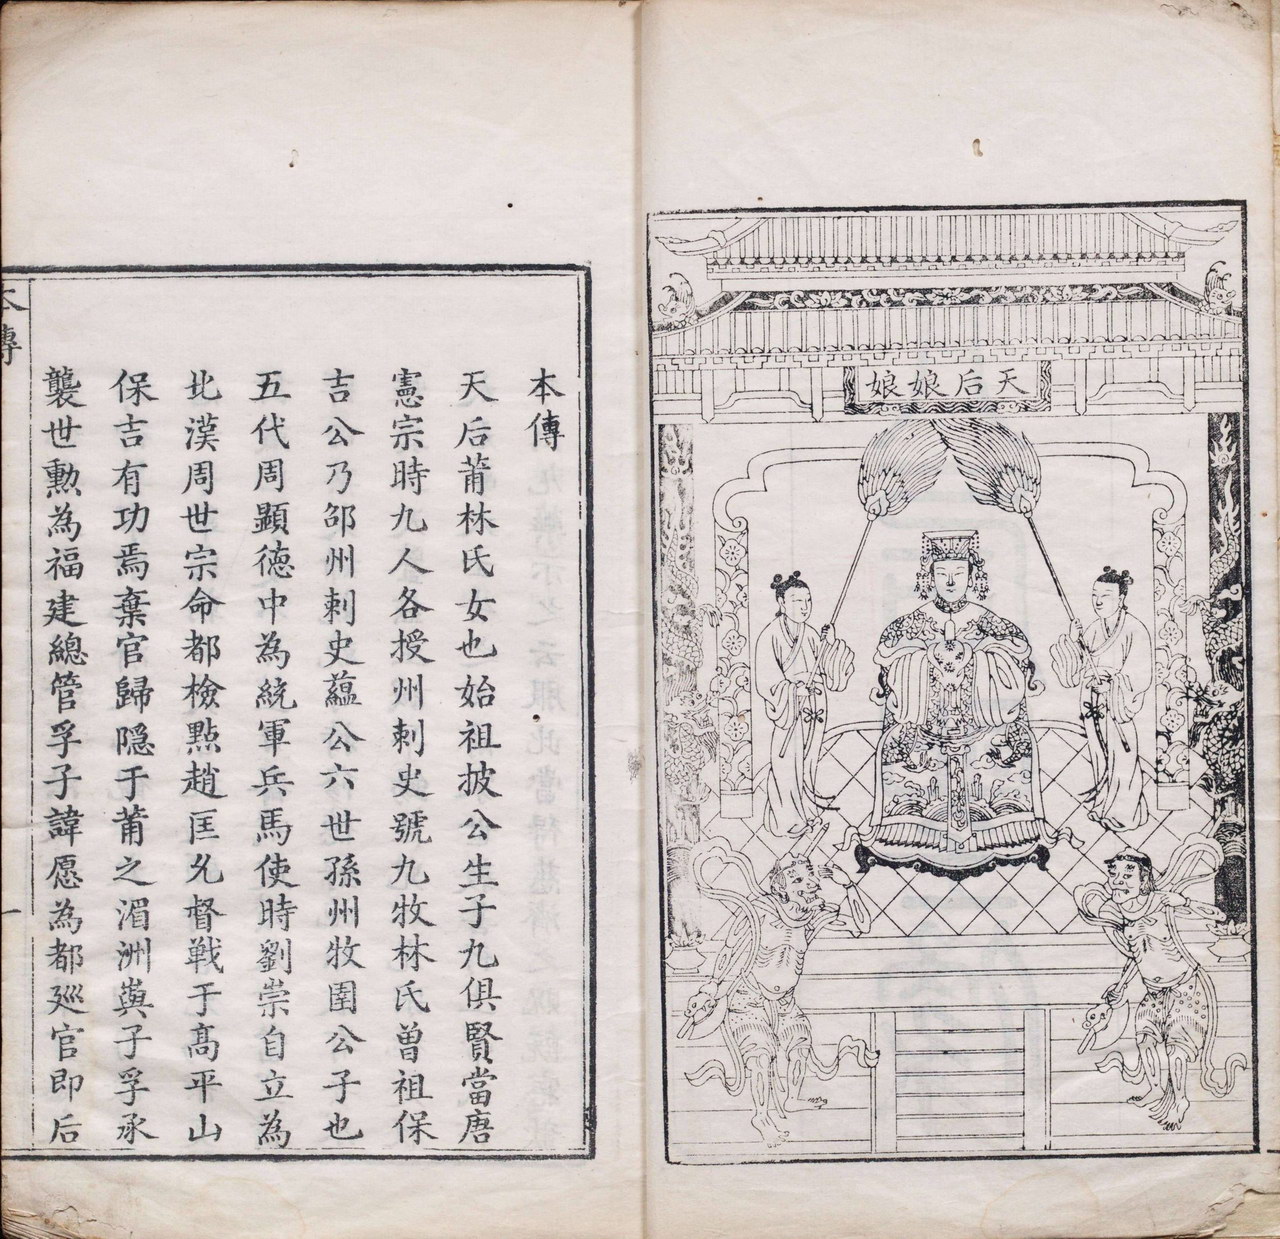 天后娘娘
本傳
天后莆林氏女也始祖披公生子九俱賢當唐
憲宗時九人各授州刺史號九牧林氏曾祖保
吉公乃邵州刺史蘊公六世孫州牧圉公子也
五代周顯德中為統軍兵馬使時劉崇自立為
北漢周世宗命都檢點趙匡𠃔督戰于高平山
保吉有功焉棄官歸隱于莆之湄洲與子孚承
襲世勲為福建總管孚子諱愿為都廵官即后
本傳
一